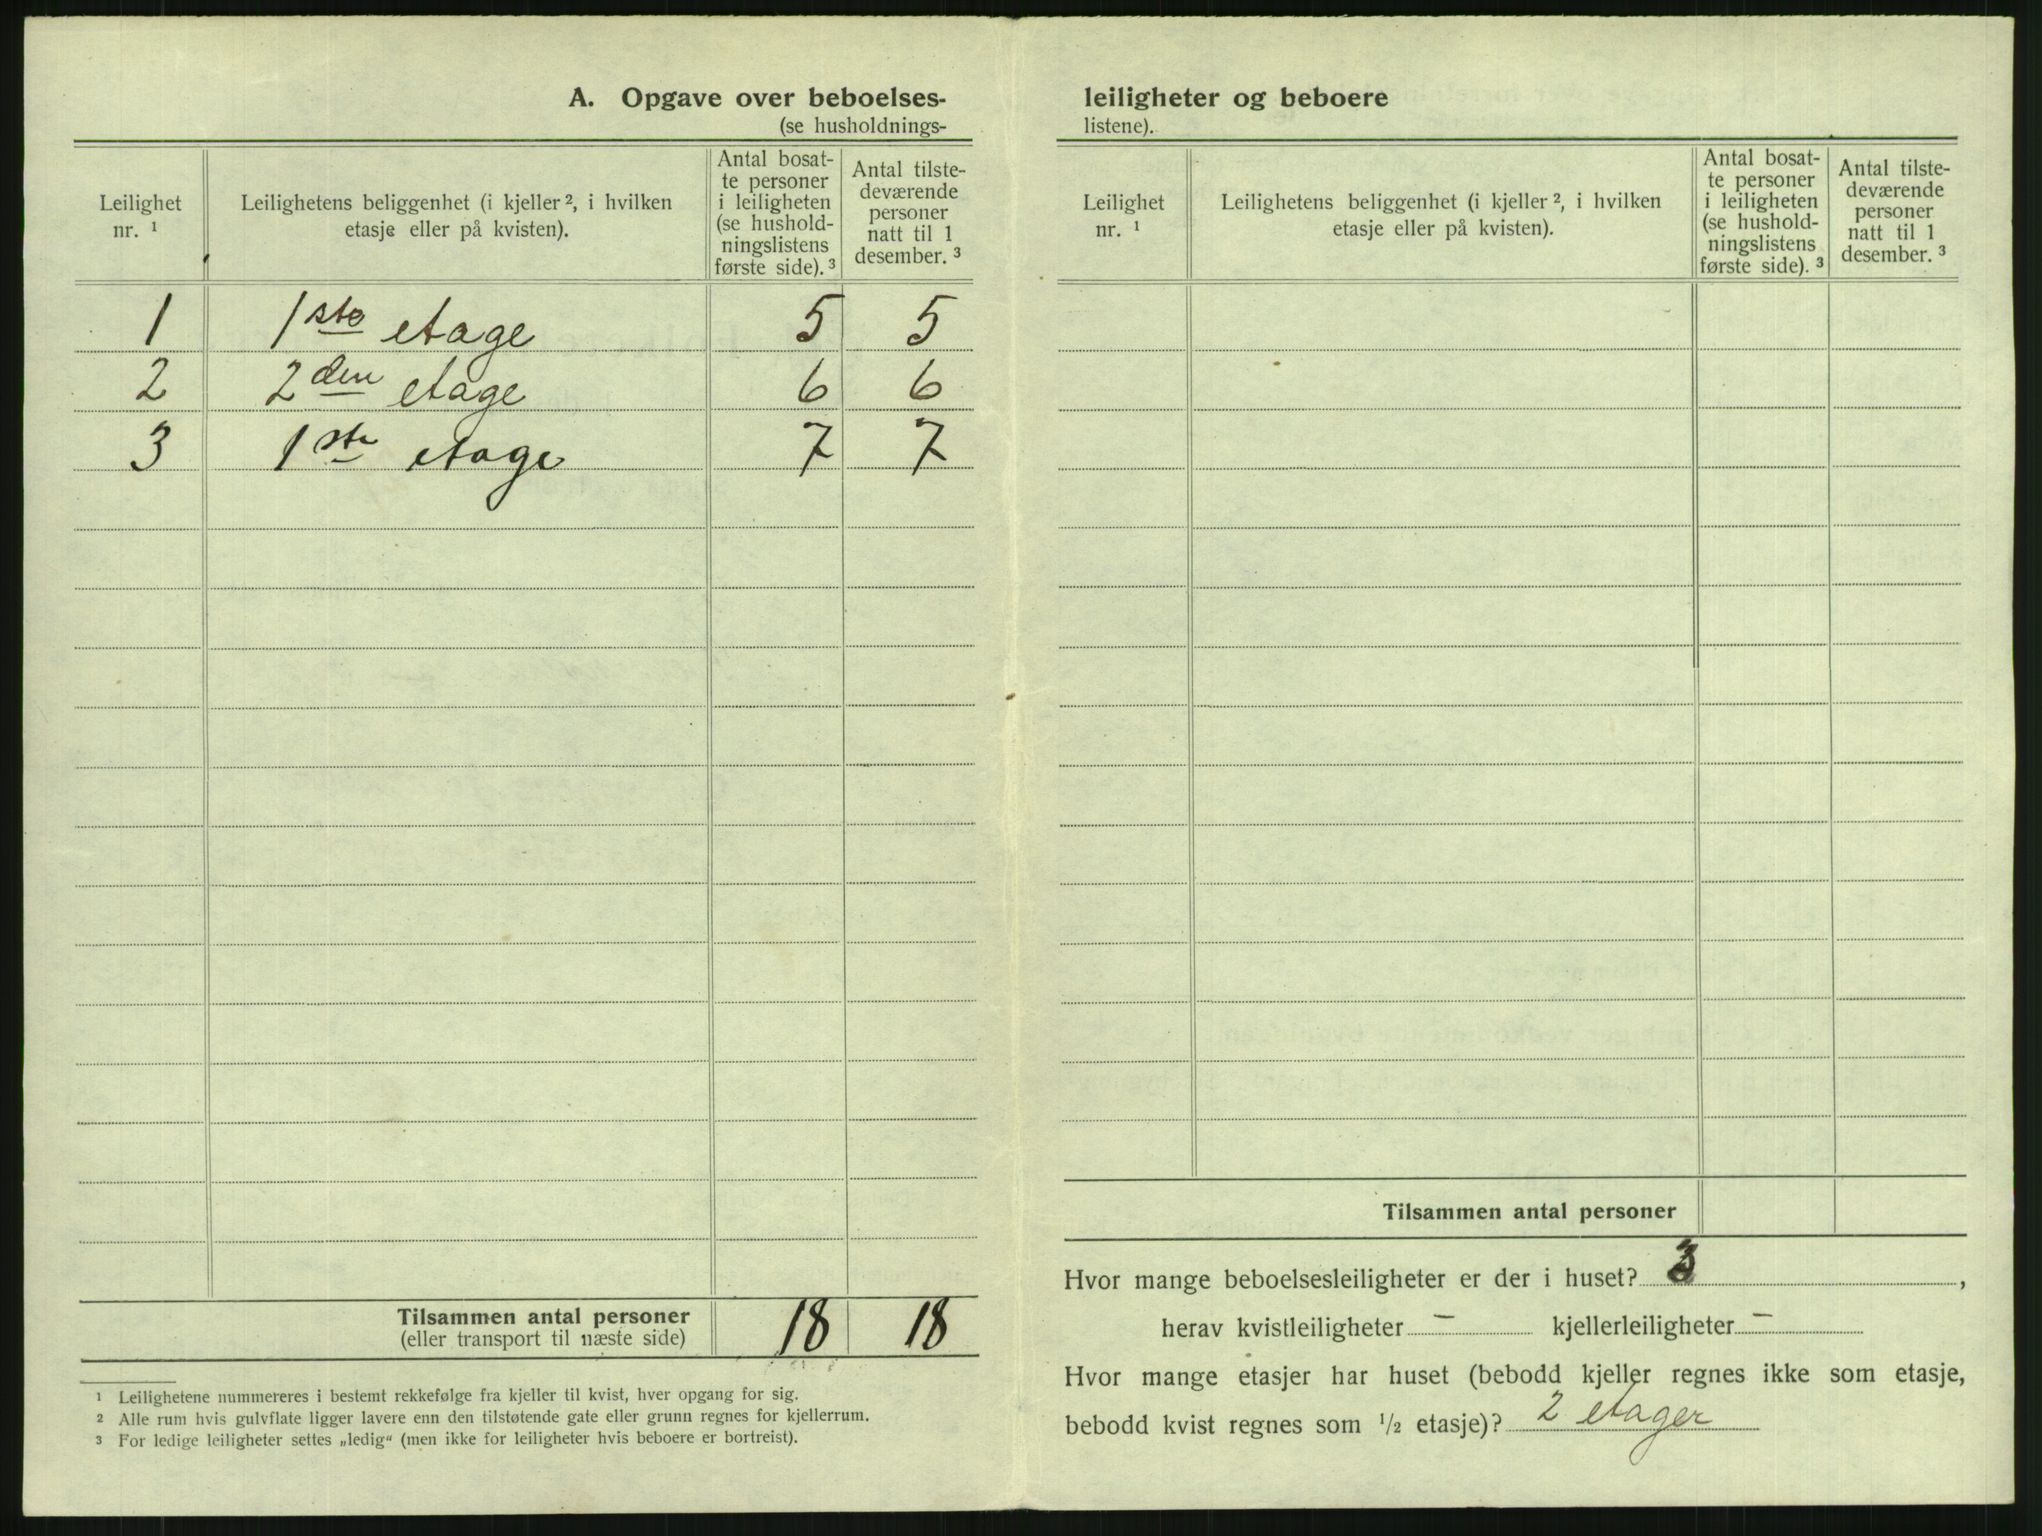 A. Opgave over beboelses-
(se husholdnings-
Leilighet nr. ¹
Leilighetens beliggenhet (i kjeller ², i hvilken etasje eller på kvisten).
Antal bosat-
te personer
i leiligheten
(se hushold-
ningslistens
første side). ³
Antal tilste-
deværende
personer
natt til 1
desember. ³
1 1ste etage 5 5
2 2den etage 6 6
3 1ste etage 7 7
Tilsammen antal personer 18 18
(eller transport til næste side)
¹ Leilighetene nummereres i bestemt rekkefølge fra kjeller til kvist, hver opgang for sig.
² Alle rum hvis gulvflate ligger lavere enn den tilstøtende gate eller grunn regnes for kjellerrum.
³ For ledige leiligheter settes „ledig“ (men ikke for leiligheter hvis beboere er bortreist).
leiligheter og beboere
listene).
Leilighet nr. ¹
Leilighetens beliggenhet (i kjeller ², i hvilken etasje eller på kvisten).
Antal bosat-
te personer
i leiligheten
(se hushold-
ningslistens
første side). ³
Antal tilste-
deværende
personer
natt til 1
desember. ³
Tilsammen antal personer
Hvor mange beboelsesleiligheter er der i huset? 3,
herav kvistleiligheter — kjellerleiligheter —
Hvor mange etasjer har huset (bebodd kjeller regnes ikke som etasje,
bebodd kvist regnes som ½ etasje)? 2 etager